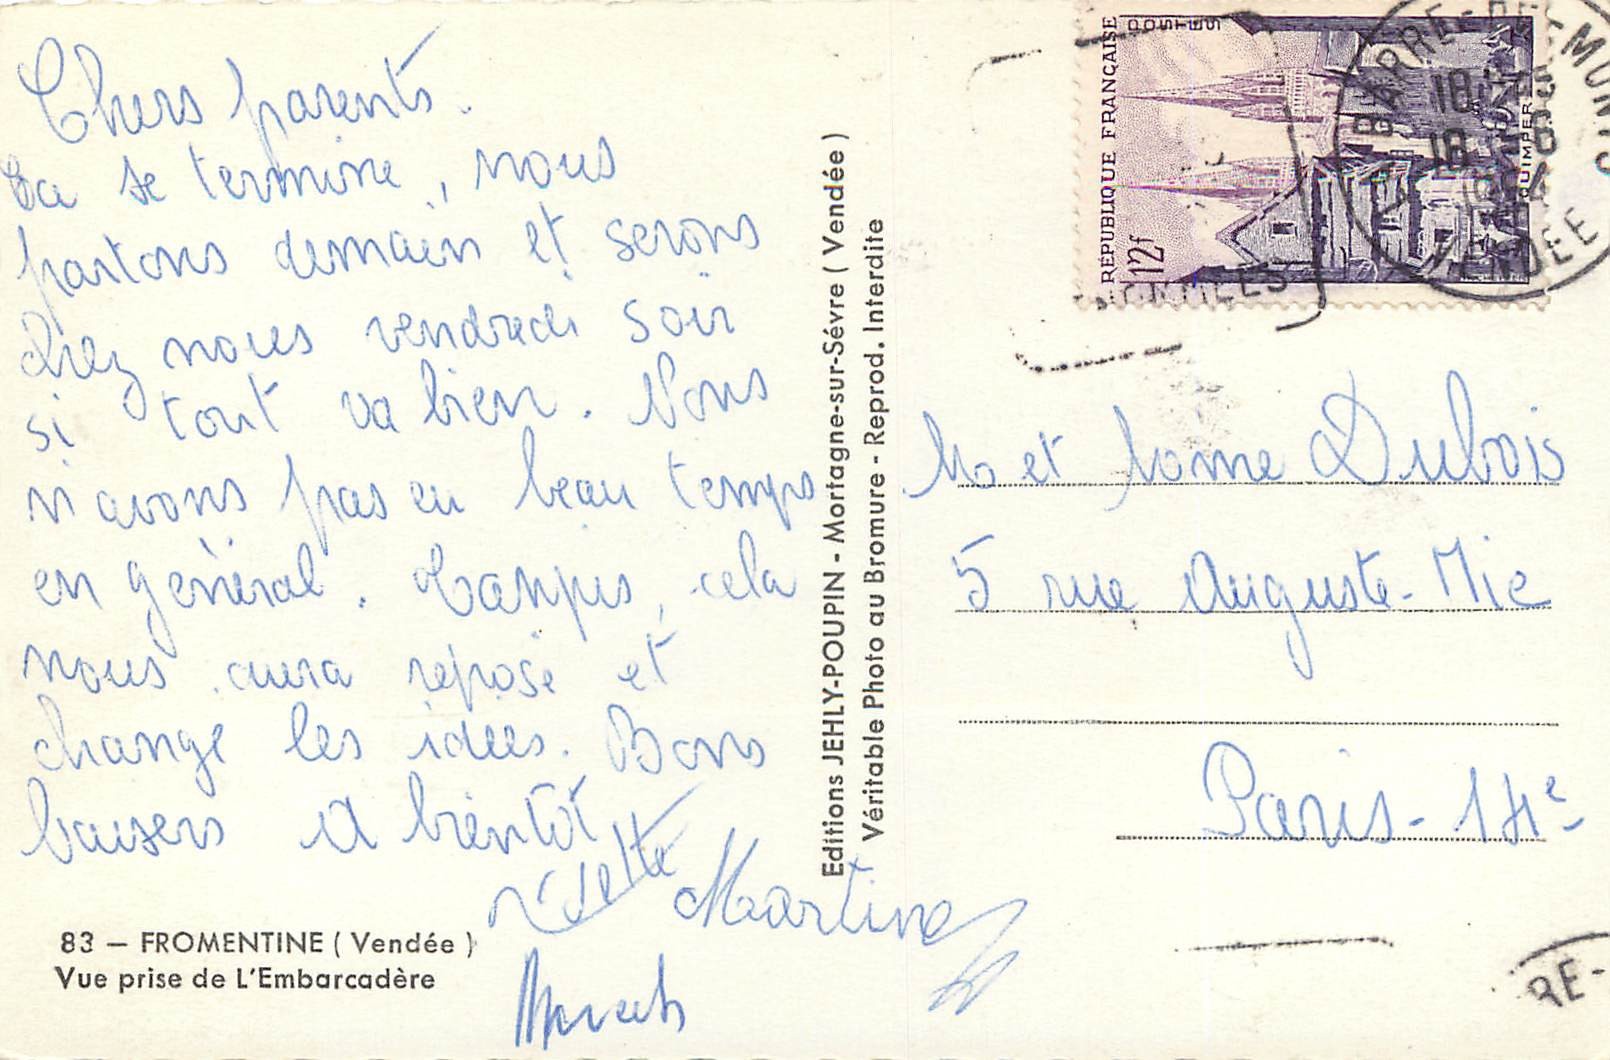 Chers parents.
Ca se termine, nous
partons demain et serons
chez nous vendredi soir
si tout va bien. Nous
n'avons pas eu beau temps
en général. Tanpis, cela
nous aura reposé et
change les idées. Bons
baisers A bientôt
Martine
83 – FROMENTINE ( Vendée )
Vue prise de L'Embarcadère
Editions JEHLY-POUPIN - Mortagne-sur-Sèvre ( Vendée )
Véritable Photo au Bromure - Reprod. Interdite
RÉPUBLIQUE FRANÇAISE
POSTES
12f
QUIMPER
LA BARRE-DE-MONTS
VENDEE
M. et Mome Dubois
5 rue Auguste-Mie
Paris-14e
RE-